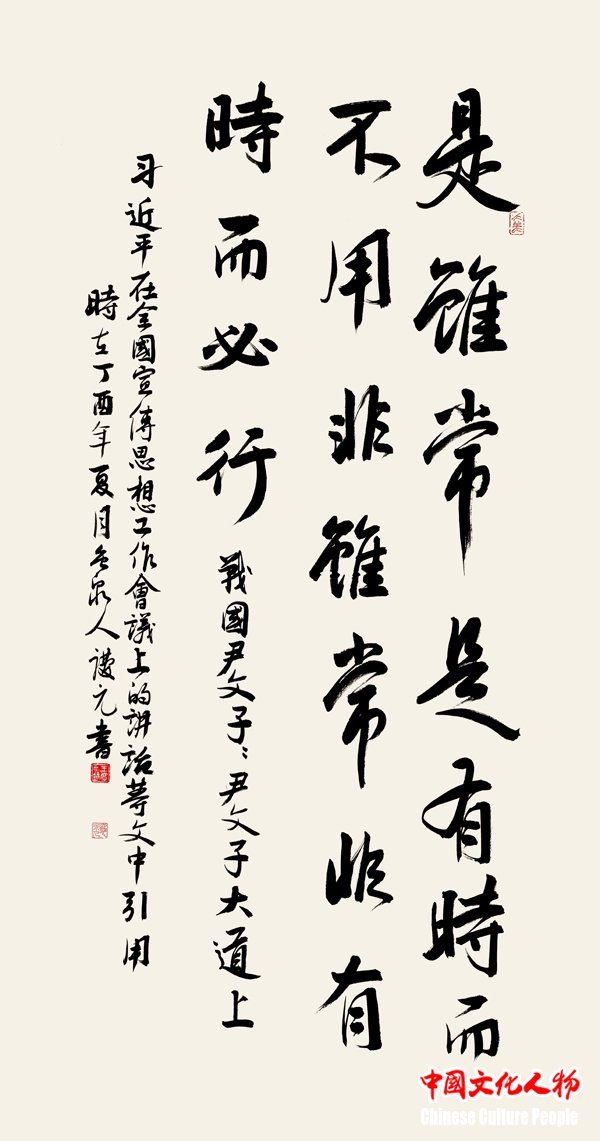 是雖常是有時而
不用非雖常非有
時而必行 戰國尹文子：尹文子大道上
习近平在全國宣傳思想工作會議上的講話等文中引用
時在丁酉年夏月 人 元書
中國文化人物
Chinese Culture People